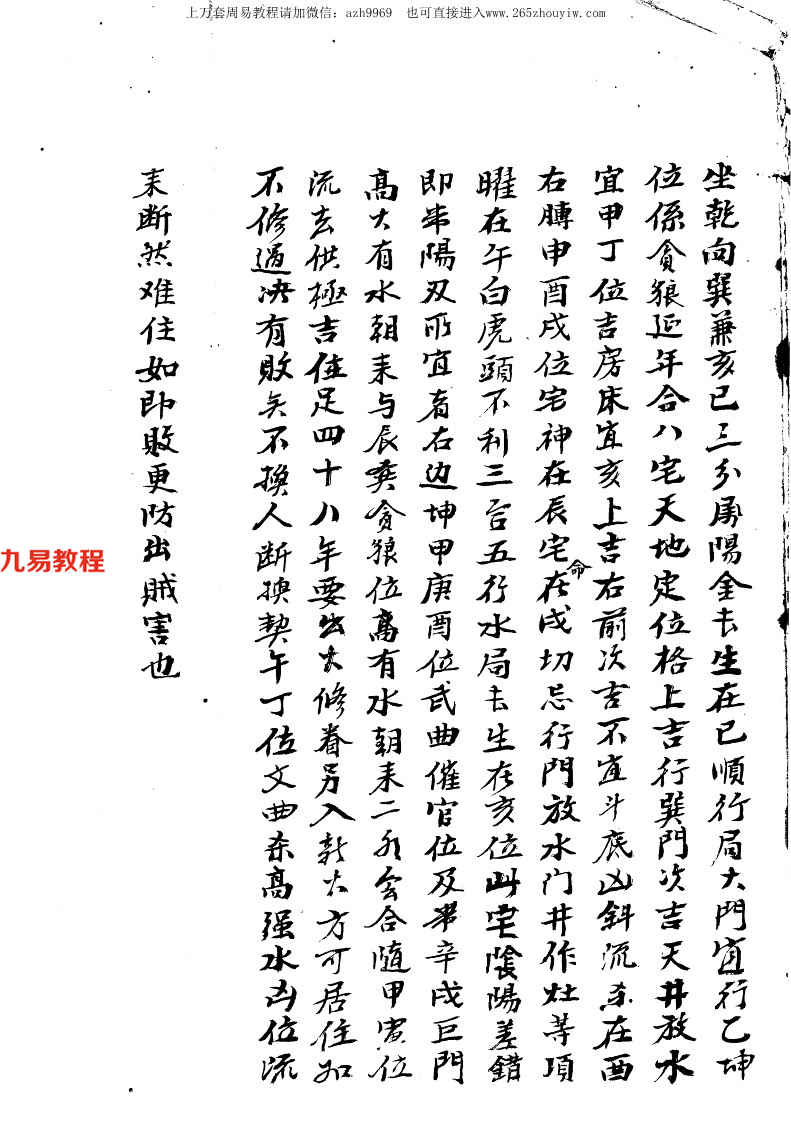 上万套周易教程请加微信：azh9969 也可直接进入www.265zhouyiw.com
坐乾向巽兼亥巳三分属陽金長生在巳順行局大門宜行乙坤
位係貪狼延年合八宅天地定位格上吉行巽門次吉天井放水
宜甲丁位吉房床宜亥上吉右前次吉不宜斗底凶斜流杀在酉
右膊申酉戌位宅神在辰宅命在戌切忌行門放水门井作灶等項
曜在午白虎頭不利三合五行水局長生在亥位此宅陰陽差錯
即串陽刃所宜者右边坤甲庚酉位武曲催官位及带辛戌巨門
高大有水朝来与辰巽貪狼位高有水朝来二水会合隨甲寅位
流去供極吉住足四十八年要出火修眷另入新火方可居住如
不修過决有敗矣不換人断换契午丁位文曲杀高强水凶位流
来断然难住如即敗更防出贼害也
九易教程